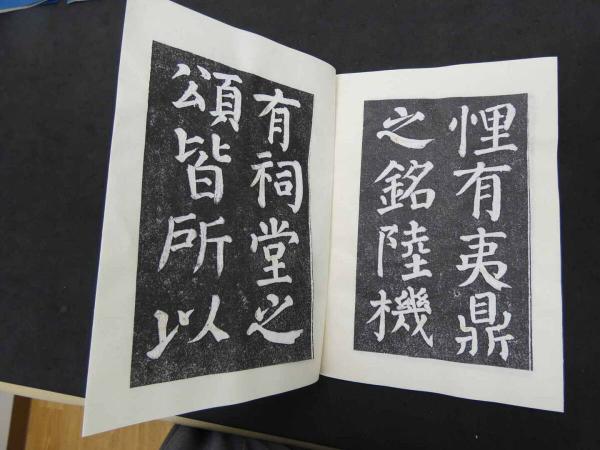 悝有夷鼎
之銘陸機
有祠堂之
頌皆所以